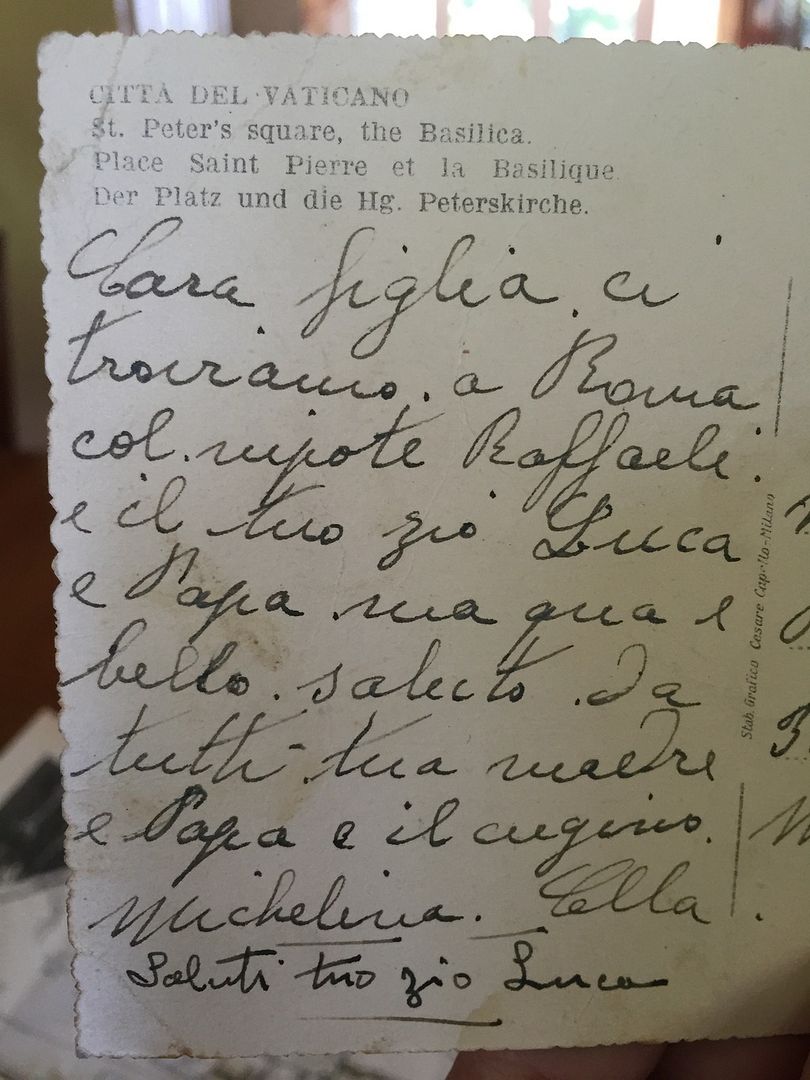 CITTÀ DEL VATICANO
St. Peter's square, the Basilica.
Place Saint Pierre et la Basilique.
Der Platz und die Hg. Peterskirche.
Cara figlia. ci
troviamo. a Roma
col. nipote Raffaele.
e il tuo zio Luca
e Papa ma qua e
bello. saluto da
tutti tua madre
e Papa e il cugino.
Michelina. Ella.
Saluti tuo zio Luca
Stab. Grafico Cesare Capello-Milano